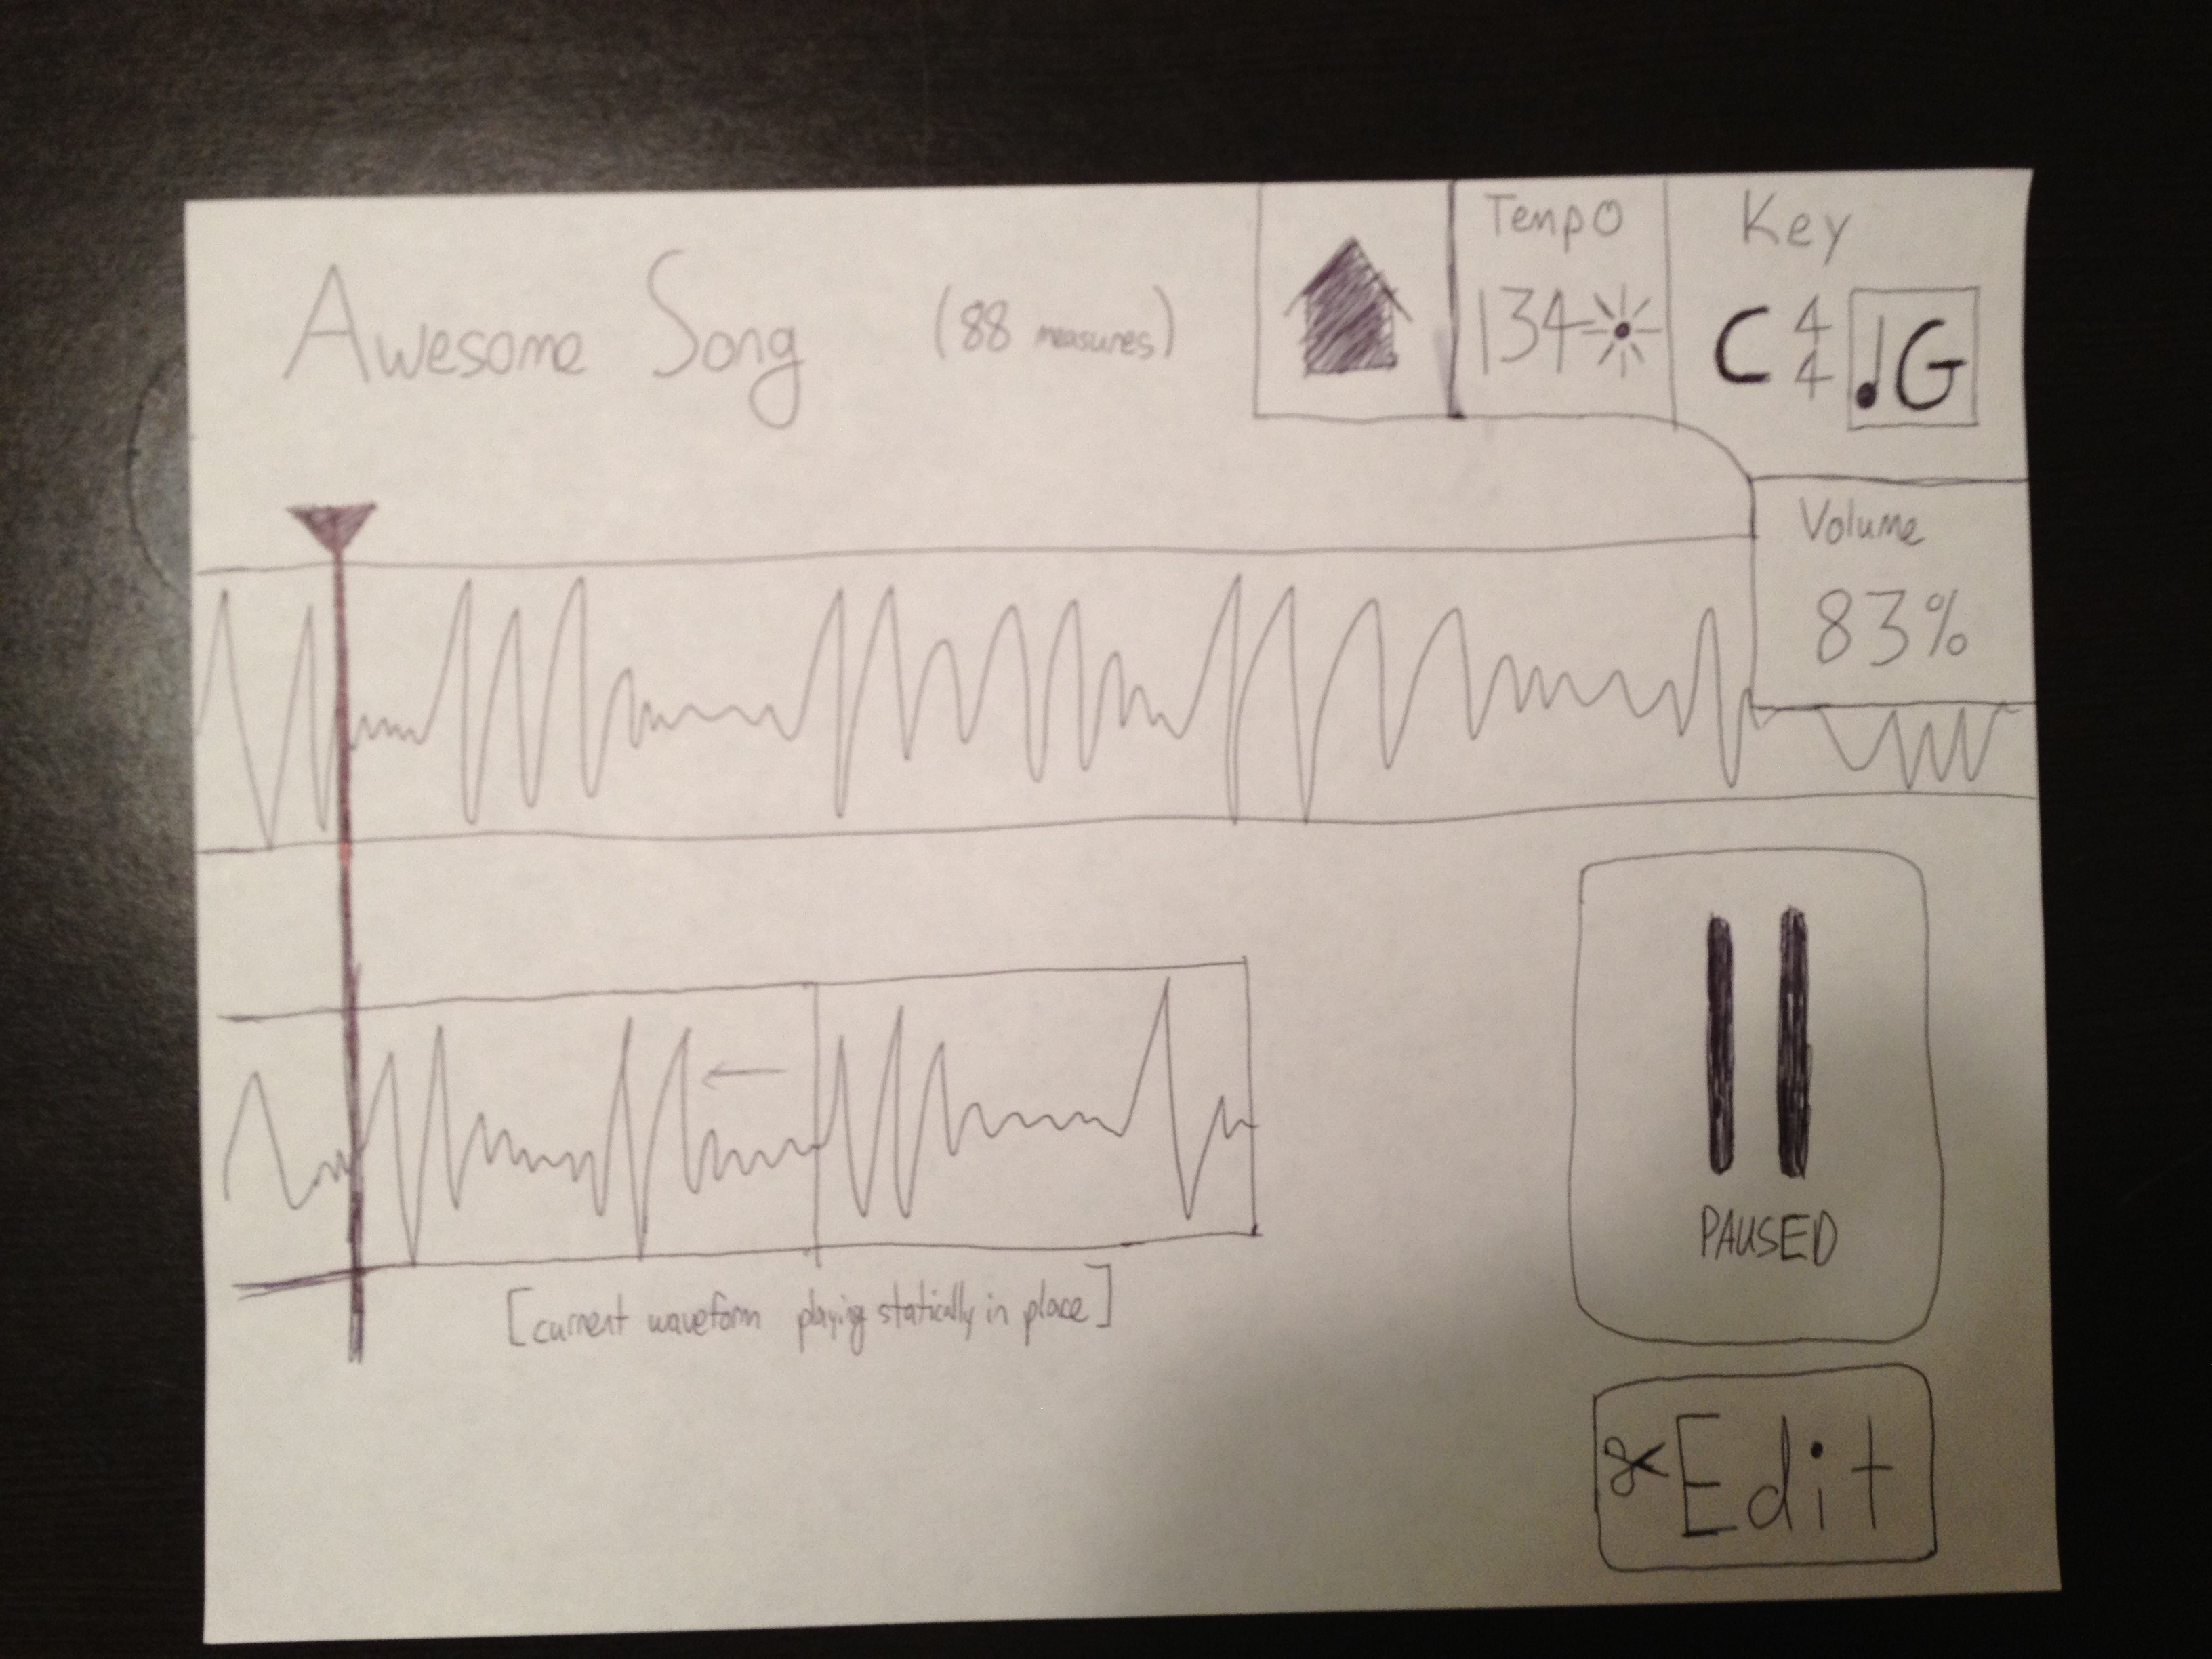 Awesome Song (88 measures)
Tempo
134
Key
C 4/4 ♩G
Volume
83%
PAUSED
[current waveform playing statically in place]
Edit